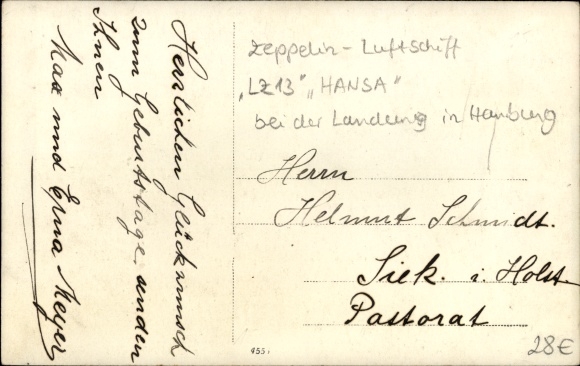 Herzlichen Glückwunsch
zum Geburtstage senden
Ihnen
Max und Erna Meyer
Zeppelin - Luftschiff
„LZ13" „HANSA"
bei der Landung in Hamburg
Herrn
Helmut Schmidt.
Siek. i. Holst.
Pastorat
28€